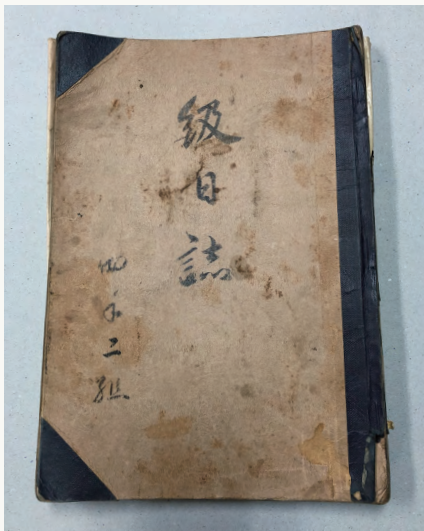 級日誌
四年二組